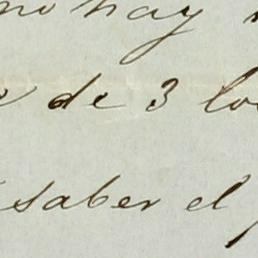 no hay
de 3
saber el